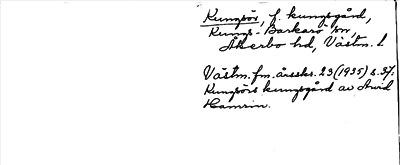 Kungsör, f. kungsgård,
Kungs-Barkarö sn,
Åkerbo hd, Västm. l.
Västm. fm. årsskr. 23 (1935) s. 37:
Kungsörs kungsgård av Arvid
Hamrin.